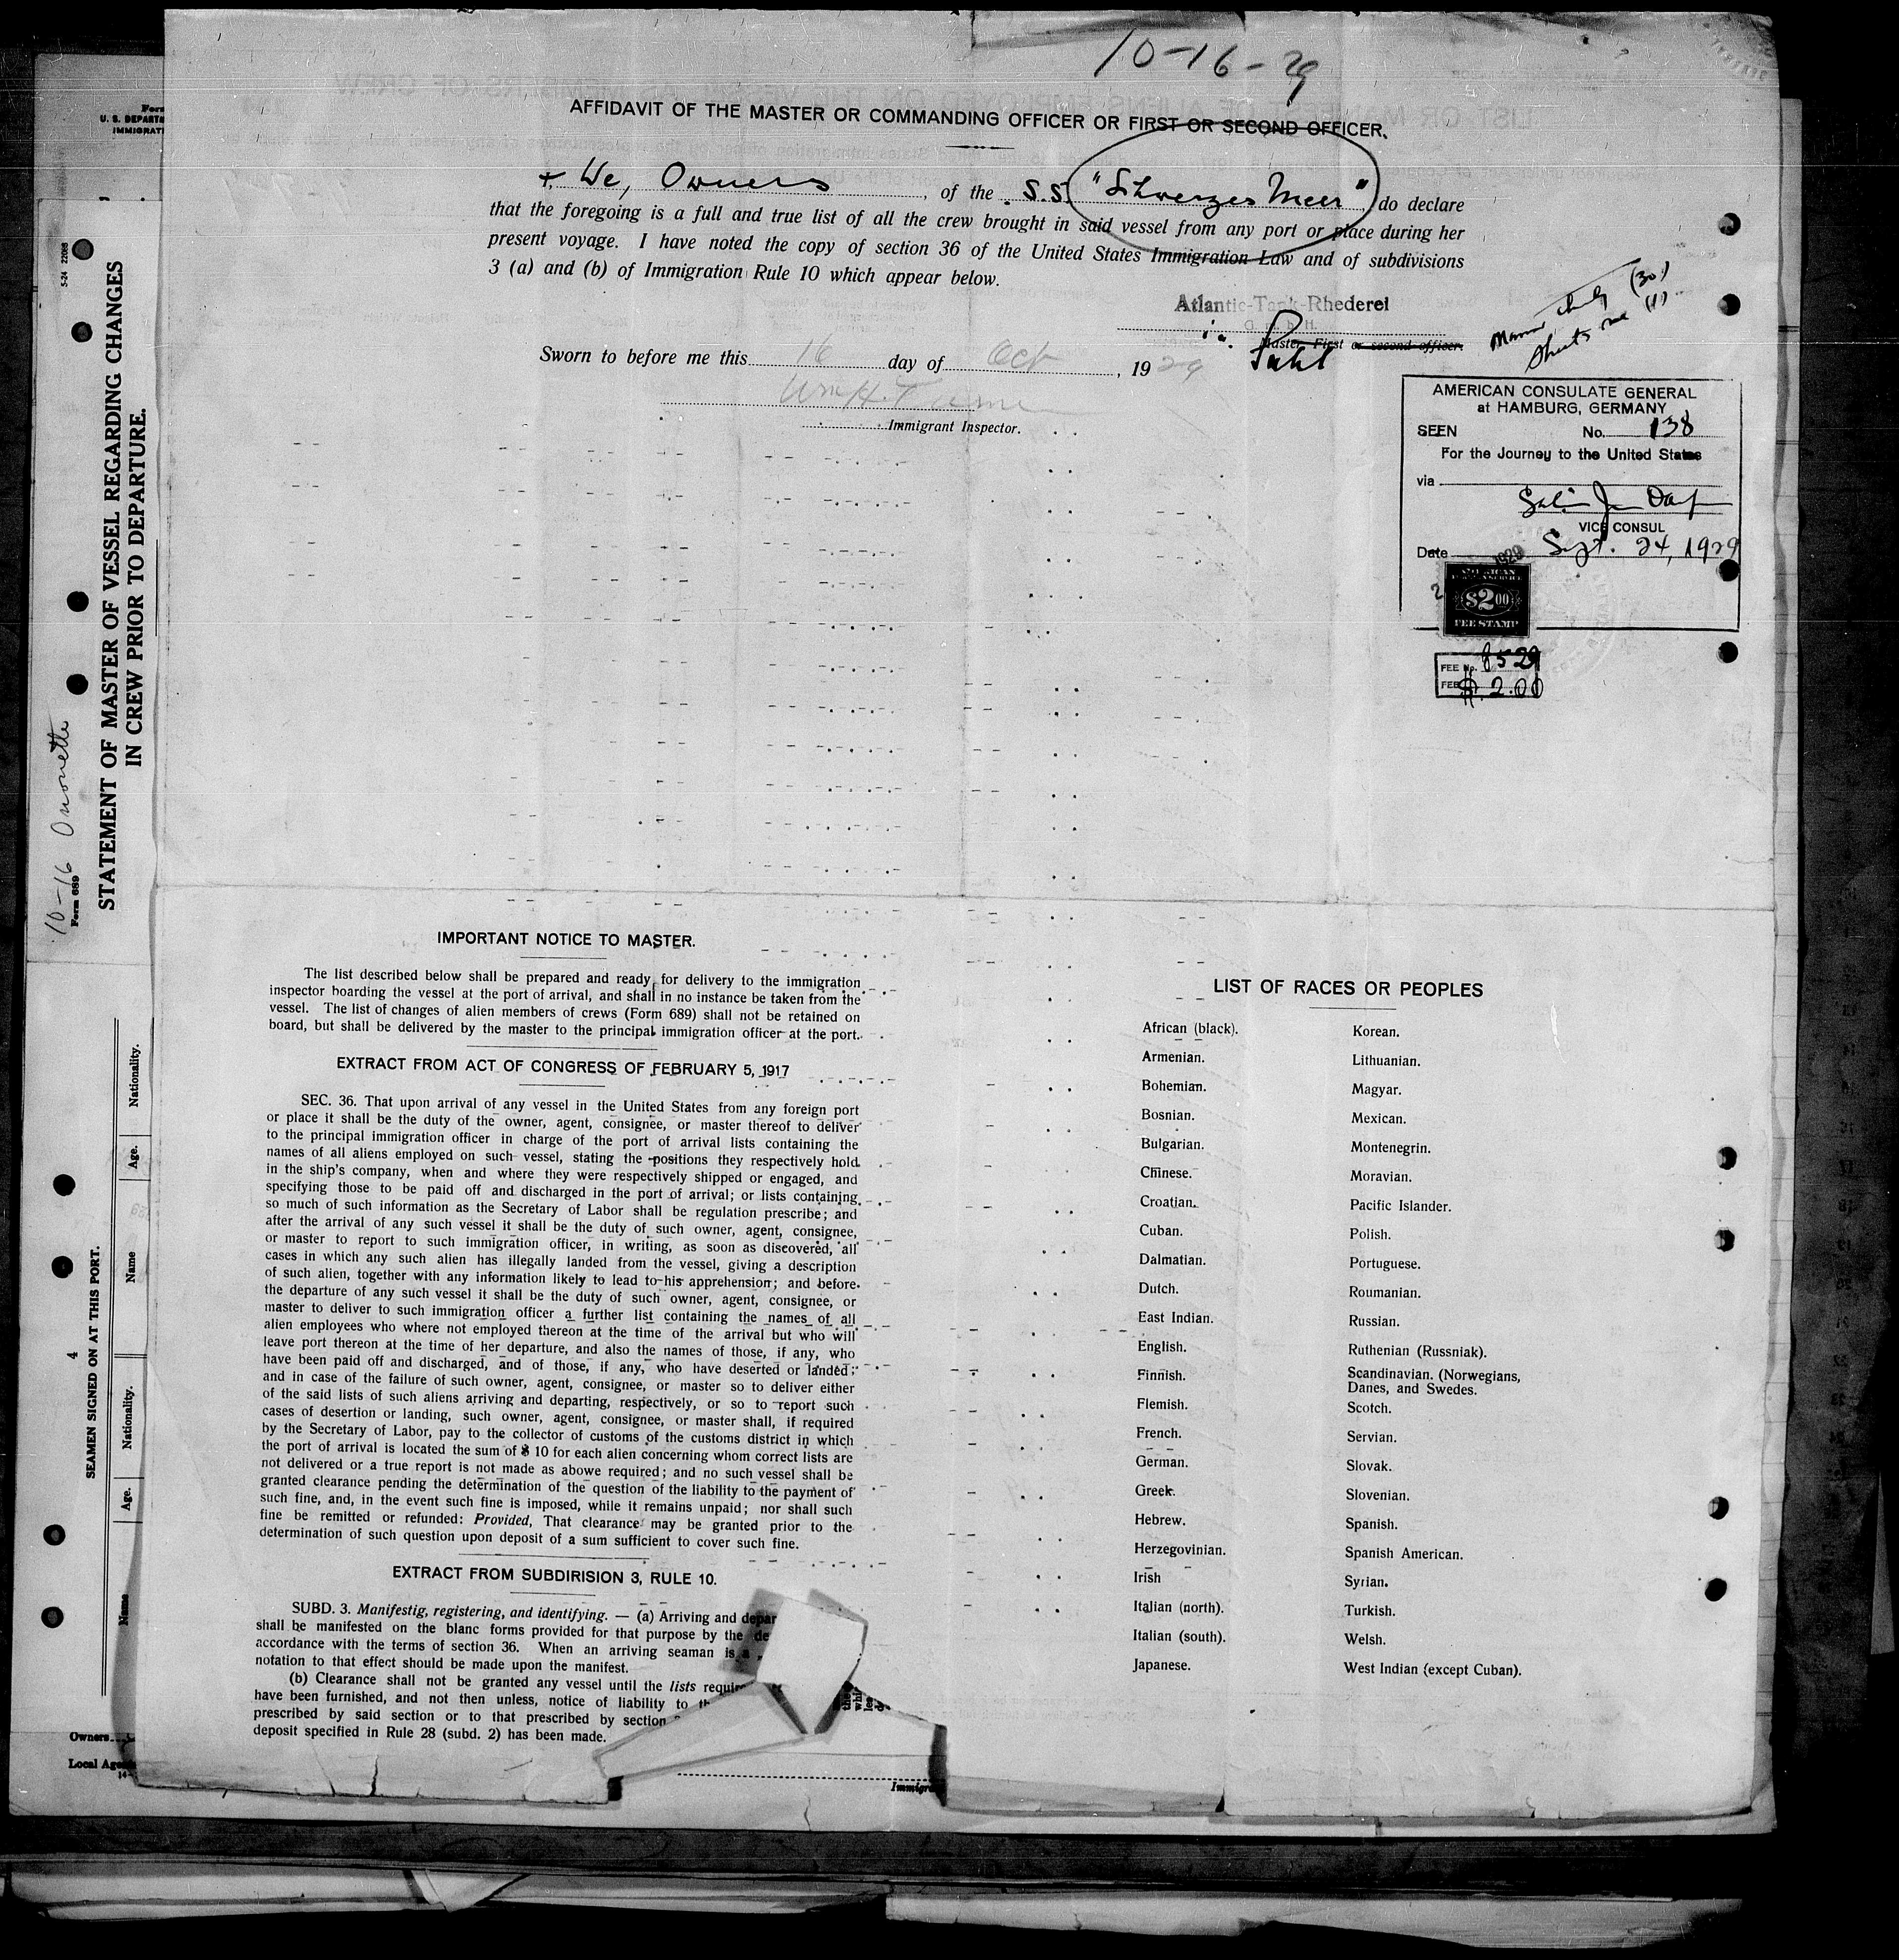 10-16-29
AFFIDAVIT OF THE MASTER OR COMMANDING OFFICER OR FIRST OR SECOND OFFICER.
We, Owners, of the S.S. "Schwarzes Meer" do declare
that the foregoing is a full and true list of all the crew brought in said vessel from any port or place during her
present voyage. I have noted the copy of section 36 of the United States Immigration Law and of subdivisions
3 (a) and (b) of Immigration Rule 10 which appear below.
Atlantic-Tank-Rhederei
G. m. b. H.
Master, First or second officer.
Sworn to before me this 16 day of Oct, 1929
Immigrant Inspector.
(30)
(1)
AMERICAN CONSULATE GENERAL
at HAMBURG, GERMANY
SEEN No. 138
For the Journey to the United States
via
VICE CONSUL
Date Sept. 24, 1929
1929
AMERICAN
$2.00
FEE STAMP
FEE No. 8529
FEE $ 2.00
IMPORTANT NOTICE TO MASTER.
The list described below shall be prepared and ready for delivery to the immigration
inspector boarding the vessel at the port of arrival, and shall in no instance be taken from the
vessel. The list of changes of alien members of crews (Form 689) shall not be retained on
board, but shall be delivered by the master to the principal immigration officer at the port.
EXTRACT FROM ACT OF CONGRESS OF FEBRUARY 5, 1917
SEC. 36. That upon arrival of any vessel in the United States from any foreign port
or place it shall be the duty of the owner, agent, consignee, or master thereof to deliver
to the principal immigration officer in charge of the port of arrival lists containing the
names of all aliens employed on such vessel, stating the positions they respectively hold
in the ship's company, when and where they were respectively shipped or engaged, and
specifying those to be paid off and discharged in the port of arrival; or lists containing
so much of such information as the Secretary of Labor shall be regulation prescribe; and
after the arrival of any such vessel it shall be the duty of such owner, agent, consignee,
or master to report to such immigration officer, in writing, as soon as discovered, all
cases in which any such alien has illegally landed from the vessel, giving a description
of such alien, together with any information likely to lead to his apprehension; and before
the departure of any such vessel it shall be the duty of such owner, agent, consignee, or
master to deliver to such immigration officer a further list containing the names of all
alien employees who where not employed thereon at the time of the arrival but who will
leave port thereon at the time of her departure, and also the names of those, if any, who
have been paid off and discharged, and of those, if any, who have deserted or landed;
and in case of the failure of such owner, agent, consignee, or master so to deliver either
of the said lists of such aliens arriving and departing, respectively, or so to report such
cases of desertion or landing, such owner, agent, consignee, or master shall, if required
by the Secretary of Labor, pay to the collector of customs of the customs district in which
the port of arrival is located the sum of $ 10 for each alien concerning whom correct lists are
not delivered or a true report is not made as abowe required; and no such vessel shall be
granted clearance pending the determination of the question of the liability to the payment of
such fine, and, in the event such fine is imposed, while it remains unpaid; nor shall such
fine be remitted or refunded: Provided, That clearance may be granted prior to the
determination of such question upon deposit of a sum sufficient to cover such fine.
EXTRACT FROM SUBDIRISION 3, RULE 10.
SUBD. 3. Manifestig, registering, and identifying. — (a) Arriving and depar
shall be manifested on the blanc forms provided for that purpose by the de
accordance with the terms of section 36. When an arriving seaman is a
notation to that effect should be made upon the manifest.
(b) Clearance shall not be granted any vessel until the lists requir
have been furnished, and not then unless, notice of liability to th
prescribed by said section or to that prescribed by section
deposit specified in Rule 28 (subd. 2) has been made.
LIST OF RACES OR PEOPLES
African (black).
Armenian.
Bohemian.
Bosnian.
Bulgarian.
Chinese.
Croatian.
Cuban.
Dalmatian.
Dutch.
East Indian.
English.
Finnish.
Flemish.
French.
German.
Greek.
Hebrew.
Herzegovinian.
Irish
Italian (north).
Italian (south).
Japanese.
Korean.
Lithuanian.
Magyar.
Mexican.
Montenegrin.
Moravian.
Pacific Islander.
Polish.
Portuguese.
Roumanian.
Russian.
Ruthenian (Russniak).
Scandinavian. (Norwegians,
Danes, and Swedes.
Scotch.
Servian.
Slovak.
Slovenian.
Spanish.
Spanish American.
Syrian.
Turkish.
Welsh.
West Indian (except Cuban).
Form
U. S. DEPARTM
IMMIGRATI
5-24 22066
10-16
Form 689
STATEMENT OF MASTER OF VESSEL REGARDING CHANGES
IN CREW PRIOR TO DEPARTURE.
4
SEAMEN SIGNED ON AT THIS PORT.
Name Age. Nationality.
Name Age. Nationality.
Owners
Local Age
14-
Immigra